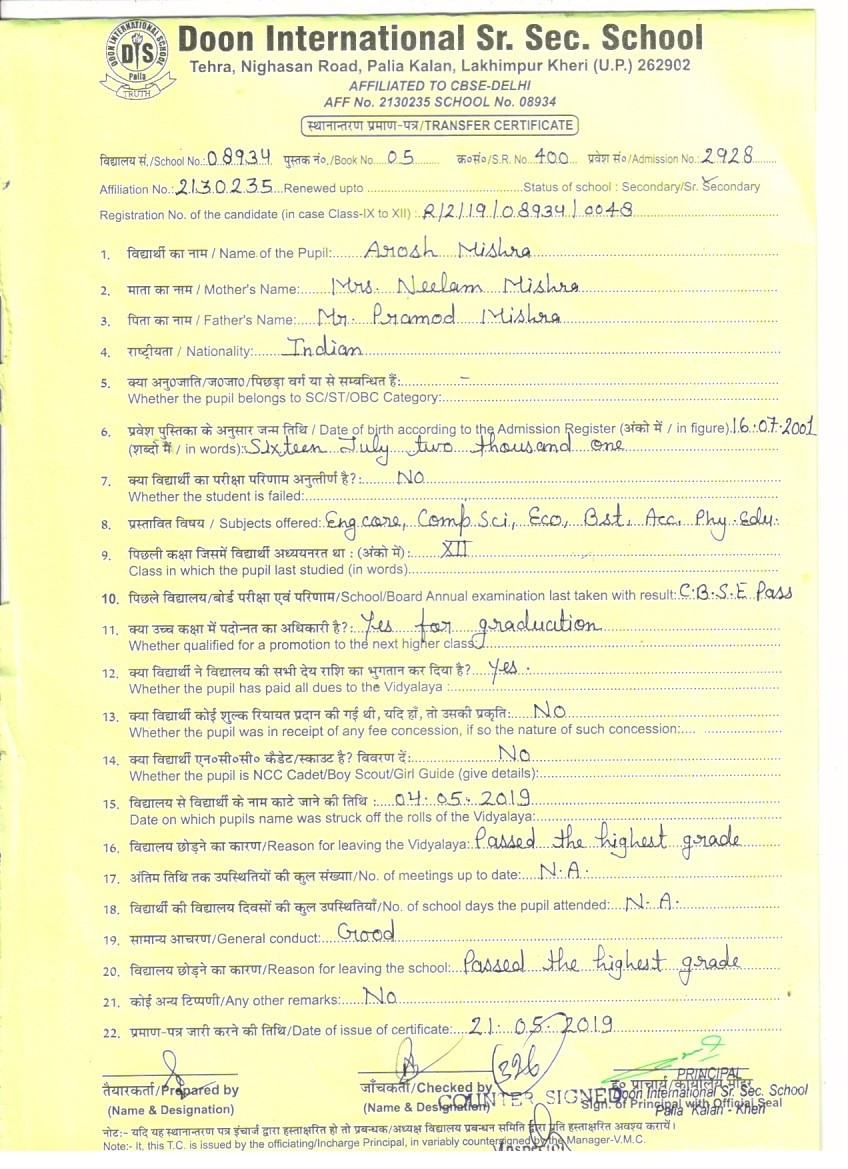 DOON INTERNATIONAL SCHOOL
DIS
Palia
TRUTH
Doon International Sr. Sec. School
Tehra, Nighasan Road, Palia Kalan, Lakhimpur Kheri (U.P.) 262902
AFFILIATED TO CBSE-DELHI
AFF No. 2130235 SCHOOL No. 08934
स्थानान्तरण प्रमाण-पत्र/TRANSFER CERTIFICATE
विद्यालय सं./School No.: 08934 पुस्तक नं०./Book No. 05 क्र०सं०/S.R. No. 400 प्रवेश सं०/Admission No.: 2928
Affiliation No.: 2130235 Renewed upto Status of school : Secondary/Sr. Secondary
Registration No. of the candidate (in case Class-IX to XII) : R/2/19/08934/0048
1. विद्यार्थी का नाम / Name of the Pupil: Arosh Mishra
2. माता का नाम / Mother's Name: Mrs. Neelam Mishra
3. पिता का नाम / Father's Name: Mr. Pramod Mishra
4. राष्ट्रीयता / Nationality: Indian
5. क्या अनु०जाति/ज०जा०/पिछड़ा वर्ग या से सम्बन्धित हैं: –
Whether the pupil belongs to SC/ST/OBC Category:
6. प्रवेश पुस्तिका के अनुसार जन्म तिथि / Date of birth according to the Admission Register (अंको में / in figure) 16.07.2001
(शब्दों में / in words): Sixteen July two thousand one
7. क्या विद्यार्थी का परीक्षा परिणाम अनुत्तीर्ण है?: NO
Whether the student is failed:
8. प्रस्तावित विषय / Subjects offered: Eng core, Comp Sci, Eco, Bst, Acc, Phy. Edu.
9. पिछली कक्षा जिसमें विद्यार्थी अध्ययनरत था : (अंको में): XII
Class in which the pupil last studied (in words)
10. पिछले विद्यालय/बोर्ड परीक्षा एवं परिणाम/School/Board Annual examination last taken with result: C.B.S.E Pass
11. क्या उच्च कक्षा में पदोन्नत का अधिकारी है?: Yes for graducation
Whether qualified for a promotion to the next higher class:
12. क्या विद्यार्थी ने विद्यालय की सभी देय राशि का भुगतान कर दिया है? Yes.
Whether the pupil has paid all dues to the Vidyalaya :
13. क्या विद्यार्थी कोई शुल्क रियायत प्रदान की गई थी, यदि हाँ, तो उसकी प्रकृति: NO
Whether the pupil was in receipt of any fee concession, if so the nature of such concession:
14. क्या विद्यार्थी एन०सी०सी० कैडेट/स्काउट है? विवरण दें: NO
Whether the pupil is NCC Cadet/Boy Scout/Girl Guide (give details):
15. विद्यालय से विद्यार्थी के नाम काटे जाने की तिथि : 04.05.2019
Date on which pupils name was struck off the rolls of the Vidyalaya:
16. विद्यालय छोड़ने का कारण/Reason for leaving the Vidyalaya: Passed the highest grade
17. अंतिम तिथि तक उपस्थितियों की कुल संख्या/No. of meetings up to date: N.A.
18. विद्यार्थी की विद्यालय दिवसों की कुल उपस्थितियाँ/No. of school days the pupil attended: N.A.
19. सामान्य आचरण/General conduct: Good
20. विद्यालय छोड़ने का कारण/Reason for leaving the school: Passed the highest grade
21. कोई अन्य टिप्पणी/Any other remarks: No
22. प्रमाण-पत्र जारी करने की तिथि/Date of issue of certificate: 21.05.2019
326
PRINCIPAL
तैयारकर्ता/Prepared by जाँचकर्ता/Checked by ह० प्राचार्य/कार्यालय मोहर
Doon International Sr. Sec. School
COUNTER SIGNED
(Name & Designation) (Name & Designation) Sign. of Principal with Official Seal
Palia Kalan - Kheri
नोटः- यदि यह स्थानान्तरण पत्र इंचार्ज द्वारा हस्ताक्षरित हो तो प्रबन्धक/अध्यक्ष विद्यालय प्रबन्धन समिति द्वारा प्रति हस्ताक्षरित अवश्य करायें।
Note:- It, this T.C. is issued by the officiating/Incharge Principal, in variably countersigned by the Manager-V.M.C.